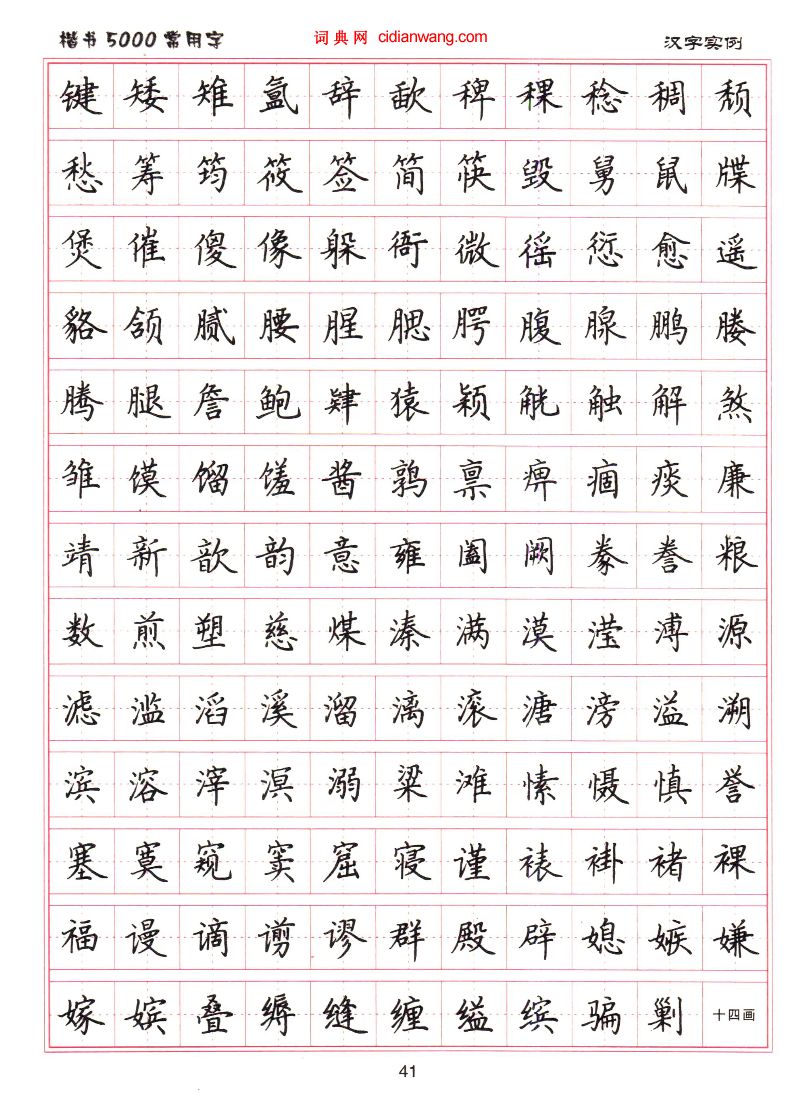 楷书5000常用字 词典网 cidianwang.com 汉字实例
键矮雉氲辞歃稗稞稔稠颓
愁筹筠筱签简筷毁舅鼠牒
煲催傻像躲衙微徭愆愈遥
貉颌腻腰腥腮腭腹腺鹏媵
腾腿詹鲍肆猿颖觥触解煞
雏馍馏馐酱鹑禀痹痼痰廉
靖新歆韵意雍阖阙豢誊粮
数煎塑慈煤溱满漠滢溥源
滤滥滔溪溜漓滚溏滂溢溯
滨溶滓溟溺粱滩愫慑慎誉
塞寞窥窦窟寝谨裱褂褚裸
福谩谪谫谬群殿辟媳嫉嫌
嫁嫔叠缛缝缠缢缤骗剿十四画
41